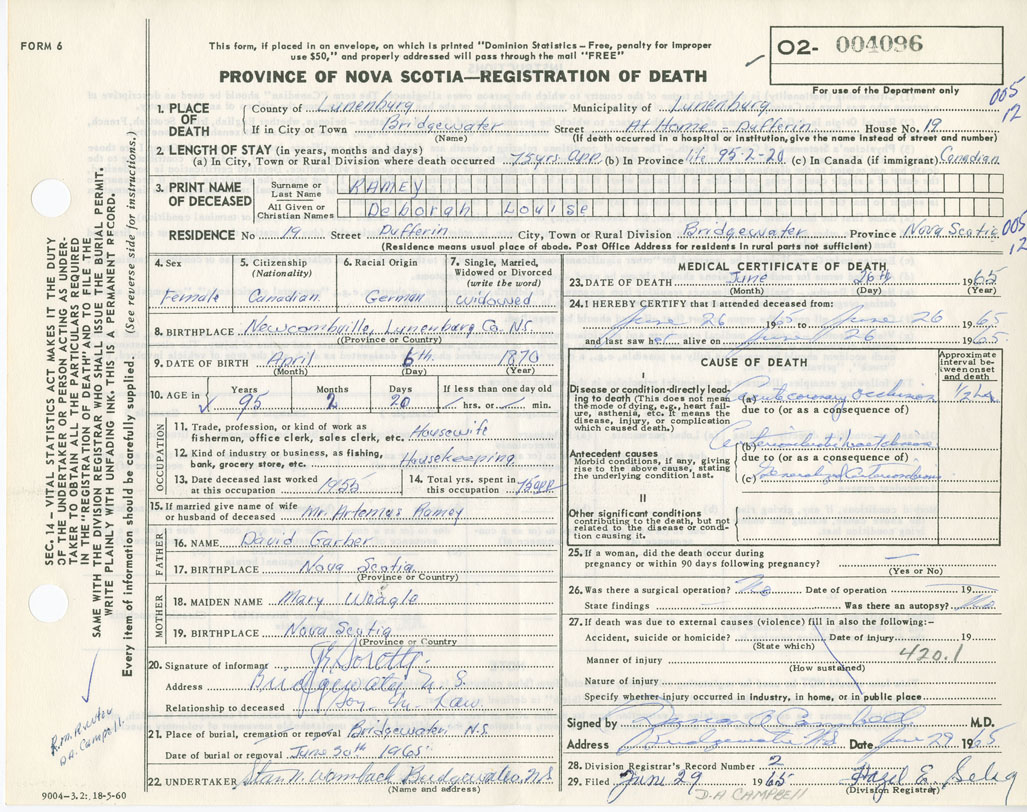 FORM 6
This form, if placed in an envelope, on which is printed "Dominion Statistics — Free, penalty for improper
use $50," and properly addressed will pass through the mail "FREE"
PROVINCE OF NOVA SCOTIA—REGISTRATION OF DEATH
O2- 004096
For use of the Department only
005
12
1. PLACE OF DEATH
County of Lunenburg Municipality of Lunenburg
If in City or Town Bridgewater Street At Home - Dufferin House No. 19
(Name) (If death occurred in hospital or institution, give the name instead of street and number)
2. LENGTH OF STAY (in years, months and days)
(a) In City, Town or Rural Division where death occurred 75yrs app. (b) In Province life 95-2-20 (c) In Canada (if immigrant) Canadian
3. PRINT NAME OF DECEASED
Surname or Last Name RAMEY
All Given or Christian Names Deborah Louise
RESIDENCE No 19 Street Dufferin City, Town or Rural Division Bridgewater Province Nova Scotia
005
12
(Residence means usual place of abode. Post Office Address for residents in rural parts not sufficient)
4. Sex
Female
5. Citizenship
(Nationality)
Canadian
6. Racial Origin
German
7. Single, Married,
Widowed or Divorced
(write the word)
widowed
8. BIRTHPLACE Newcombville, Lunenburg Co. N.S.
(Province or Country)
9. DATE OF BIRTH April 6th 1870
(Month) (Day) (Year)
10. AGE in
Years 95
Months 2
Days 20
If less than one day old
hrs. or min.
OCCUPATION
11. Trade, profession, or kind of work as
fisherman, office clerk, sales clerk, etc. Housewife
12. Kind of industry or business, as fishing,
bank, grocery store, etc. Housekeeping
13. Date deceased last worked
at this occupation 1955
14. Total yrs. spent in
this occupation 75 app
15. If married give name of wife
or husband of deceased Mr. Artemas Ramey
FATHER
16. NAME David Garber
17. BIRTHPLACE Nova Scotia
(Province or Country)
MOTHER
18. MAIDEN NAME Mary Weagle
19. BIRTHPLACE Nova Scotia
(Province or Country)
20. Signature of informant
Address Bridgewater N.S.
Relationship to deceased Son in Law
21. Place of burial, cremation or removal Bridgewater N.S.
Date of burial or removal June 30th 1965
22. UNDERTAKER Stan N. Wambach Bridgewater, N.S.
(Name and address)
9004-3.2: 18-5-60
SEC. 14 — VITAL STATISTICS ACT MAKES IT THE DUTY
OF THE UNDERTAKER OR PERSON ACTING AS UNDER-
TAKER TO OBTAIN ALL THE PARTICULARS REQUIRED
IN THE "REGISTRATION OF DEATH" AND TO FILE THE
SAME WITH THE DIVISION REGISTRAR WHO SHALL ISSUE THE BURIAL PERMIT.
WRITE PLAINLY WITH UNFADING INK. THIS IS A PERMANENT RECORD.
Every item of information should be carefully supplied. (See reverse side for instructions.)
MEDICAL CERTIFICATE OF DEATH
23. DATE OF DEATH June 26th 1965
(Month) (Day) (Year)
24. I HEREBY CERTIFY that I attended deceased from:
June 26 1965 to June 26 1965
and last saw her alive on June 26 1965.
CAUSE OF DEATH
Approximate
interval be-
tween onset
and death
I
Disease or condition directly lead-
ing to death (This does not mean
the mode of dying, e.g., heart fail-
ure, asthenia, etc. It means the
disease, injury, or complication
which caused death.)
(a) Acute coronary occlusion 1/2 hr
due to (or as a consequence of)
(b)
due to (or as a consequence of)
Antecedent causes
Morbid conditions, if any, giving
rise to the above cause, stating
the underlying condition last.
(c) Generalized
II
Other significant conditions
contributing to the death, but not
related to the disease or condi-
tion causing it.
25. If a woman, did the death occur during
pregnancy or within 90 days following pregnancy? —
(Yes or No)
26. Was there a surgical operation? No Date of operation 19
State findings Was there an autopsy? No
27. If death was due to external causes (violence) fill in also the following:—
Accident, suicide or homicide? Date of injury 19
(State which)
Manner of injury 420.1
(How sustained)
Nature of injury
Specify whether injury occurred in industry, in home, or in public place
Signed by Duncan A Campbell M.D.
Address Bridgewater N.S. Date June 29 1965
28. Division Registrar's Record Number 2
29. Filed June 29 1965 Hazel E. Selig
(Division Registrar)
D-A CAMPBELL